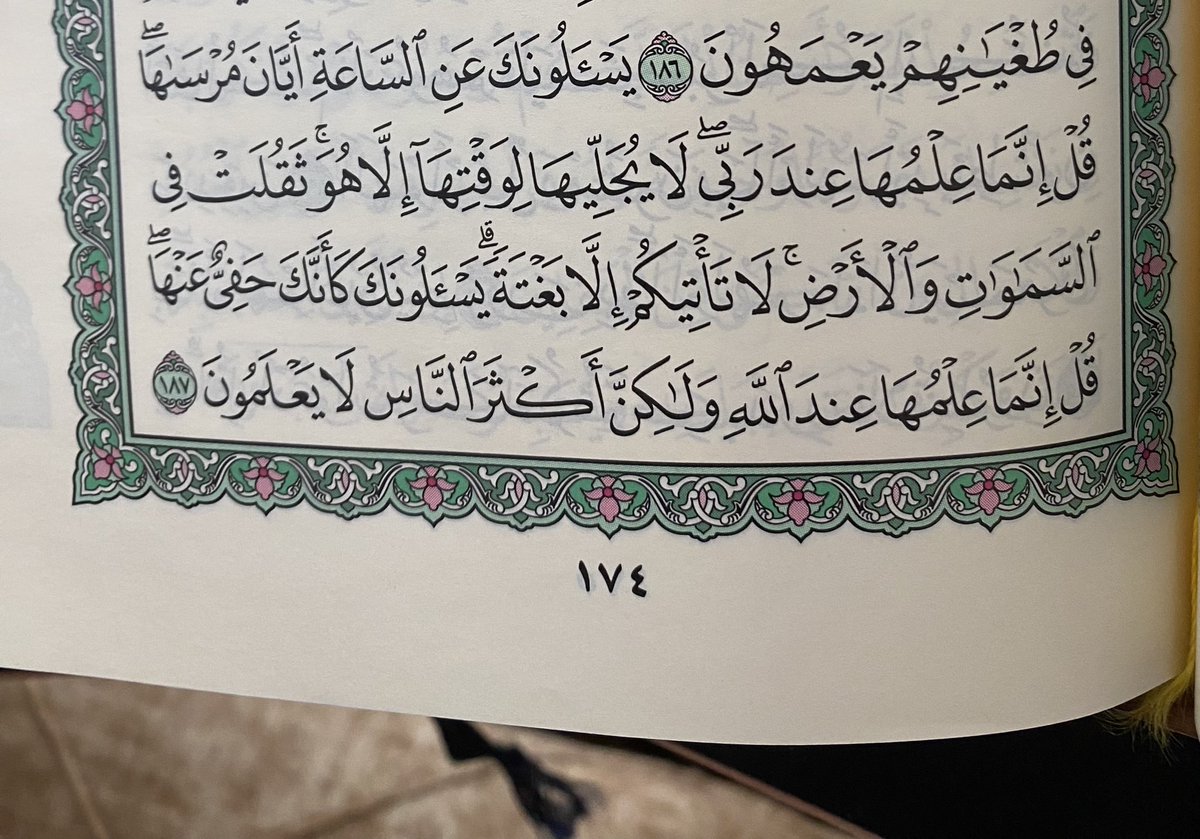 فِي طُغْيَٰنِهِمْ يَعْمَهُونَ ١٨٦ يَسْـَٔلُونَكَ عَنِ ٱلسَّاعَةِ أَيَّانَ مُرْسَىٰهَا ۖ
قُلْ إِنَّمَا عِلْمُهَا عِندَ رَبِّي ۖ لَا يُجَلِّيهَا لِوَقْتِهَآ إِلَّا هُوَ ۚ ثَقُلَتْ فِي
ٱلسَّمَٰوَٰتِ وَٱلْأَرْضِ ۚ لَا تَأْتِيكُمْ إِلَّا بَغْتَةً ۗ يَسْـَٔلُونَكَ كَأَنَّكَ حَفِيٌّ عَنْهَا ۖ
قُلْ إِنَّمَا عِلْمُهَا عِندَ ٱللَّهِ وَلَٰكِنَّ أَكْثَرَ ٱلنَّاسِ لَا يَعْلَمُونَ ١٨٧
١٧٤